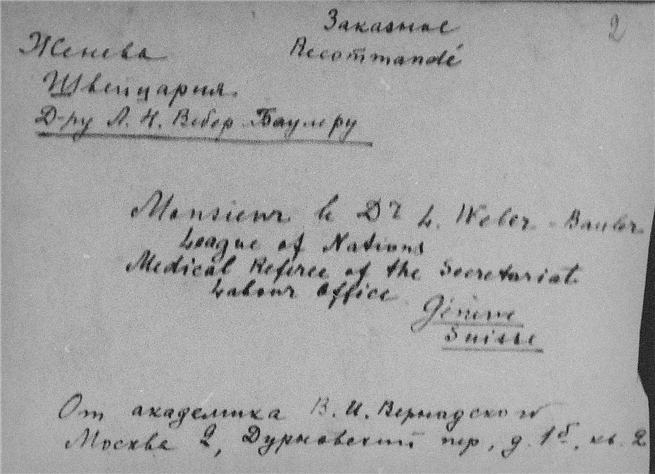 Заказное 2
Recommandé
Женева
Швейцария
Д-ру Л. Н. Вебер-Баулеру
Monsieur le Dr L. Weber-Bauler
League of Nations
Medical Referee of the Secretariat
Labour Office
Genève
Suisse
От академика В. И. Вернадского
Москва 2, Дурновский пер, д. 1б, кв. 2